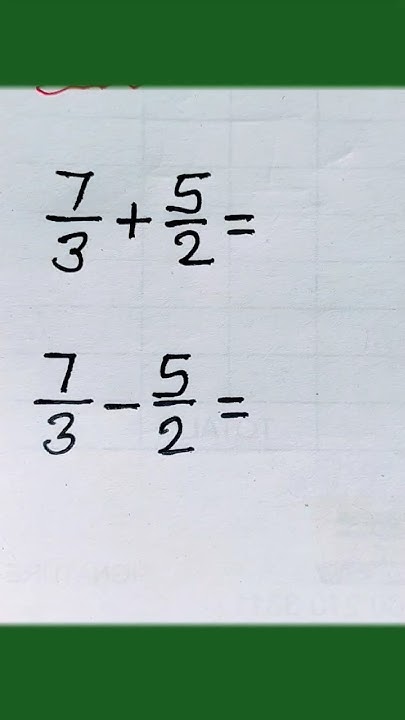 7/3 + 5/2 =
7/3 - 5/2 =